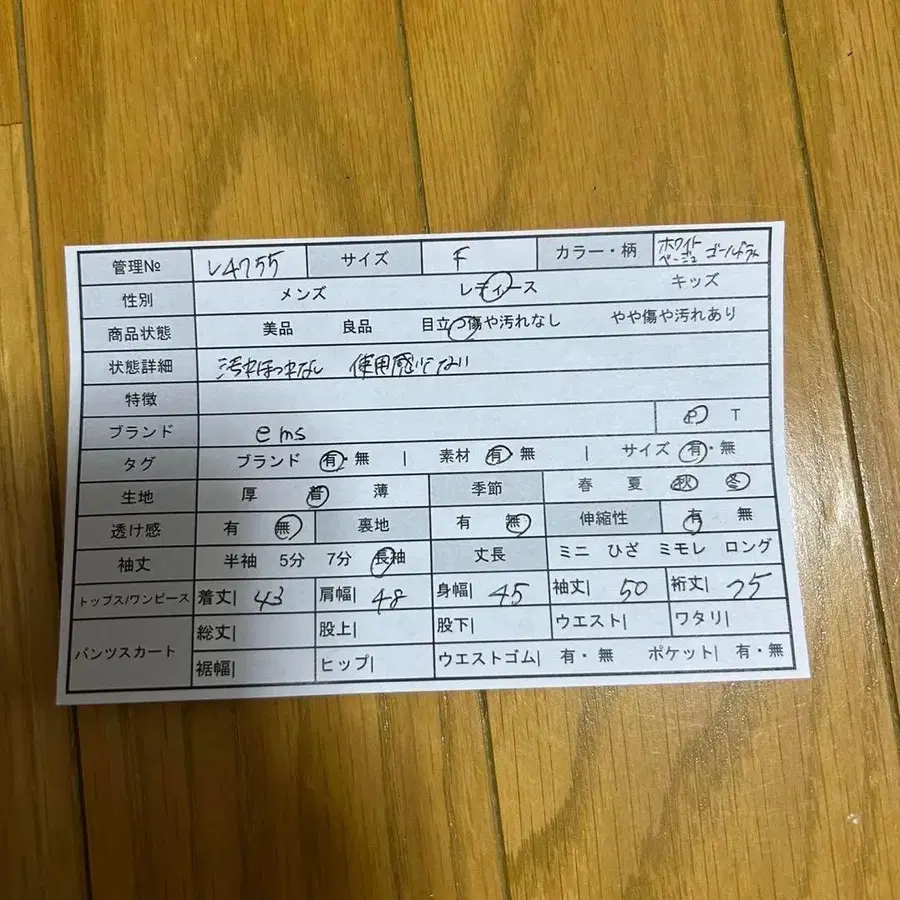 管理№ L4755 サイズ F カラー・柄 ホワイト ベージュ ゴールドラメ
性別 メンズ レディース キッズ
商品状態 美品 良品 目立つ傷や汚れなし やや傷や汚れあり
状態詳細 汚れほつれなし 使用感少ない
特徴
ブランド ems P T
タグ ブランド 有・無 | 素材 有・無 | サイズ 有・無
生地 厚 普 薄 季節 春 夏 秋 冬
透け感 有 無 裏地 有 無 伸縮性 有 無
袖丈 半袖 5分 7分 長袖 丈長 ミニ ひざ ミモレ ロング
トップス/ワンピース 着丈| 43 肩幅| 48 身幅| 45 袖丈| 50 裄丈| 75
パンツスカート 総丈| 股上| 股下| ウエスト| ワタリ|
裾幅| ヒップ| ウエストゴム| 有・無 ポケット| 有・無